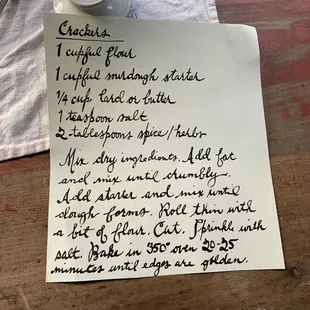 Crackers
1 cupful flour
1 cupful sourdough starter
1/4 cup lard or butter
1 teaspoon salt
2 tablespoons spice/herbs
Mix dry ingredients. Add fat
and mix until crumbly.
Add starter and mix until
dough forms. Roll thin with
a bit of flour. Cut. Sprinkle with
salt. Bake in 350° oven 20-25
minutes until edges are golden.